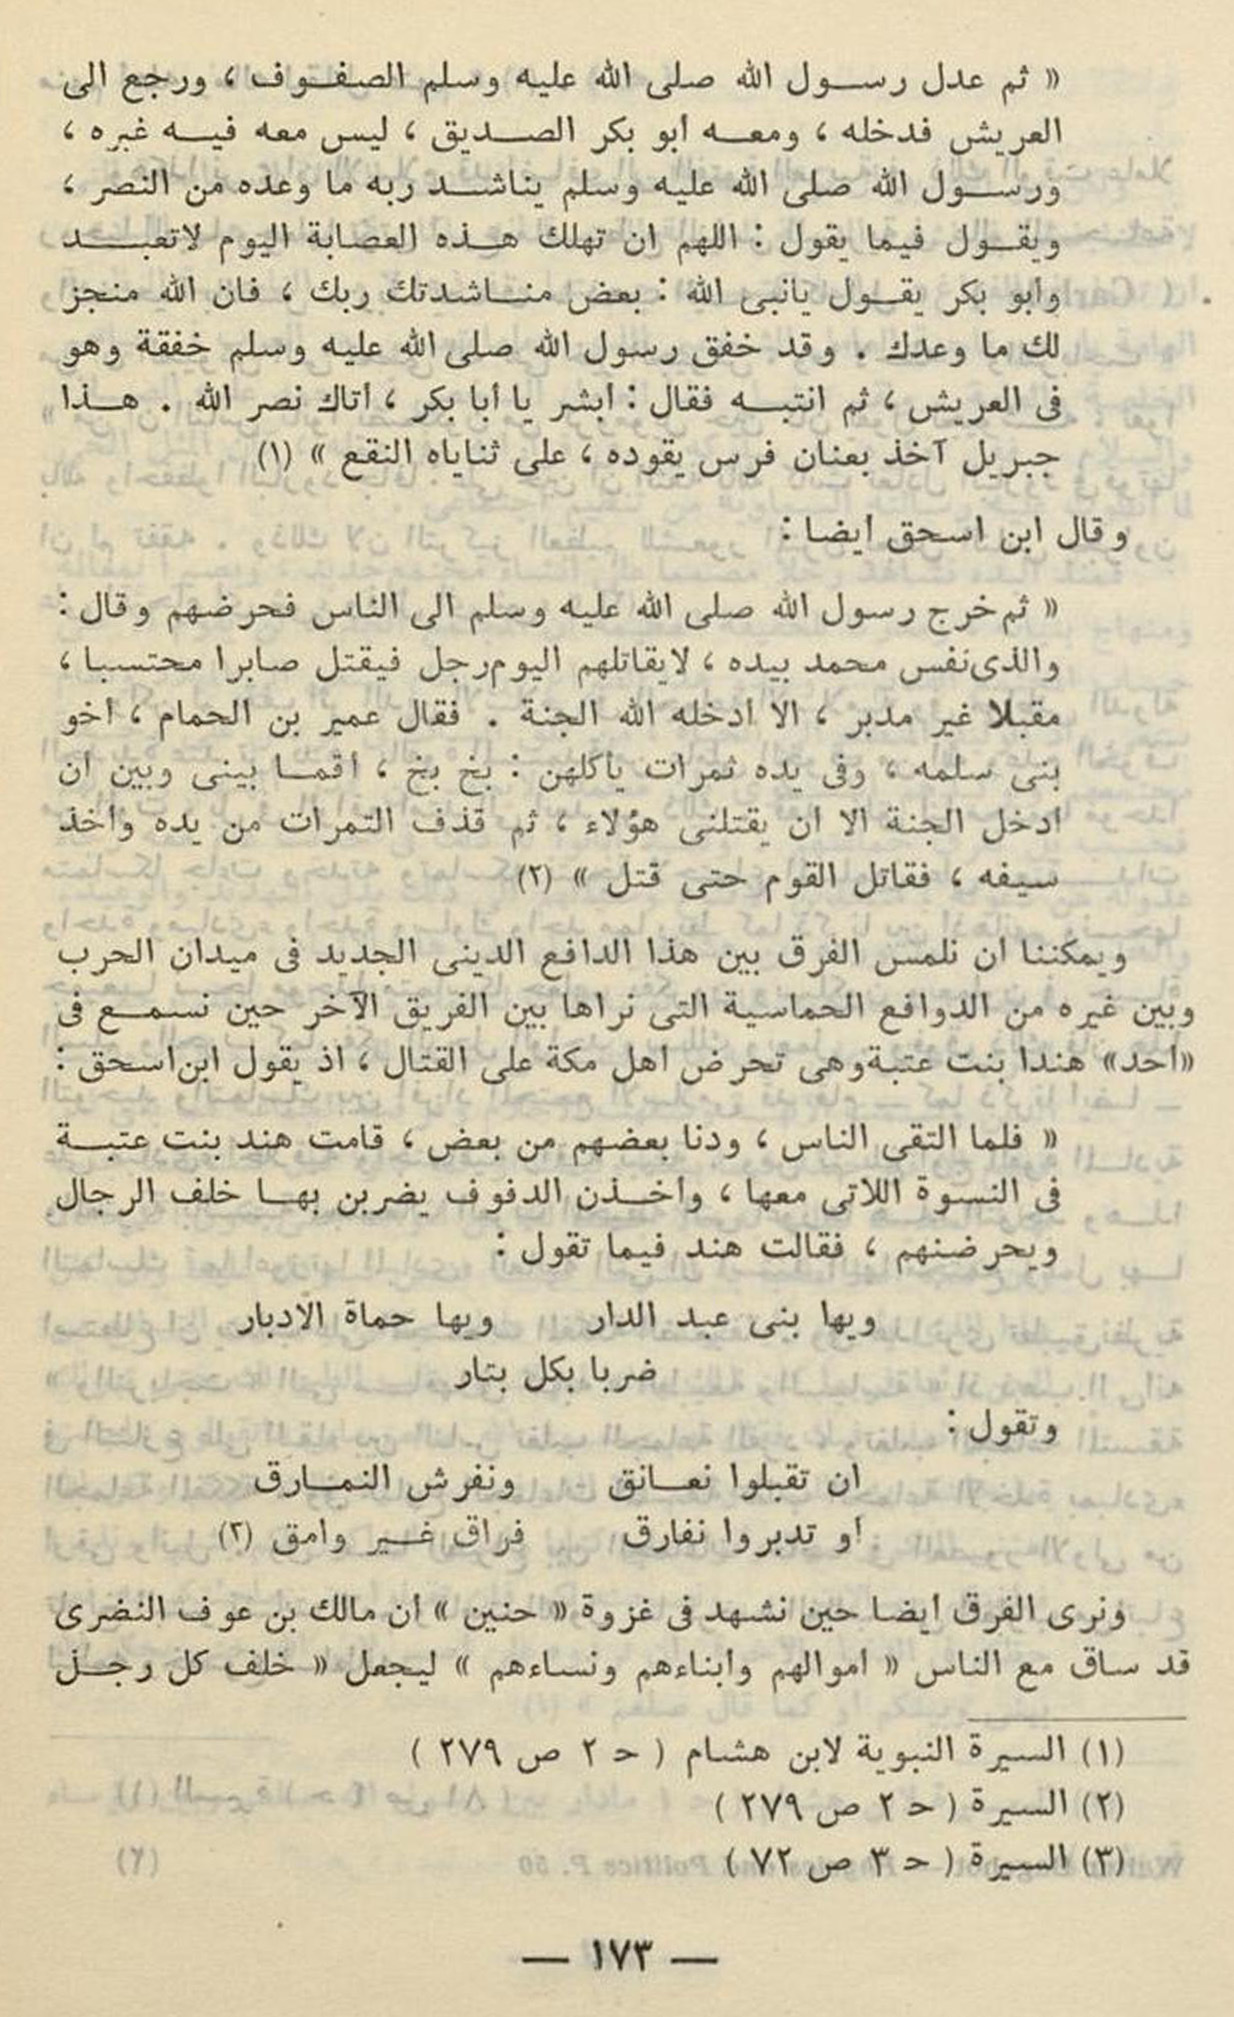 « ثم عدل رسول الله صلى الله عليه وسلم الصفوف ، ورجع الى
العريش فدخله ، ومعه أبو بكر الصديق ، ليس معه فيه غيره ،
ورسول الله صلى الله عليه وسلم يناشد ربه ما وعده من النصر ،
ويقول فيما يقول : اللهم ان تهلك هذه العصابة اليوم لاتعبد
وأبو بكر يقول يانبى الله : بعض مناشدتك ربك ، فان الله منجز
لك ما وعدك . وقد خفق رسول الله صلى الله عليه وسلم خفقة وهو
فى العريش ، ثم انتبه فقال : أبشر يا أبا بكر ، أتاك نصر الله . هذا
جبريل آخذ بعنان فرس يقوده ، على ثناياه النقع » (١)
وقال ابن اسحق أيضا :
« ثم خرج رسول الله صلى الله عليه وسلم الى الناس فحرضهم وقال :
والذى نفس محمد بيده ، لايقاتلهم اليوم رجل فيقتل صابرا محتسبا ،
مقبلا غير مدبر ، الا أدخله الله الجنة . فقال عمير بن الحمام ، أخو
بنى سلمه ، وفى يده ثمرات يأكلهن : بخ بخ ، أفما بينى وبين أن
أدخل الجنة الا أن يقتلنى هؤلاء ، ثم قذف التمرات من يده وأخذ
سيفه ، فقاتل القوم حتى قتل » (٢)
ويمكننا أن نلمس الفرق بين هذا الدافع الدينى الجديد فى ميدان الحرب
وبين غيره من الدوافع الحماسية التى نراها بين الفريق الآخر حين نسمع فى
«أحد» هندا بنت عتبة وهى تحرض أهل مكة على القتال ، اذ يقول ابن اسحق :
« فلما التقى الناس ، ودنا بعضهم من بعض ، قامت هند بنت عتبة
فى النسوة اللاتى معها ، وأخذن الدفوف يضربن بها خلف الرجال
ويحرضنهم ، فقالت هند فيما تقول :
ويها بنى عبد الدار ويها حماة الادبار
ضربا بكل بتار
وتقول :
ان تقبلوا نعانق ونفرش النمارق
أو تدبروا نفارق فراق غير وامق (٣)
ونرى الفرق أيضا حين نشهد فى غزوة « حنين » أن مالك بن عوف النضرى
قد ساق مع الناس « أموالهم وأبناءهم ونساءهم » ليجعل « خلف كل رجل
(١) السيرة النبوية لابن هشام ( حـ ٢ ص ٢٧٩ )
(٢) السيرة ( حـ ٢ ص ٢٧٩ )
(٣) السيرة ( حـ ٣ ص ٧٢ )
— ١٧٣ —